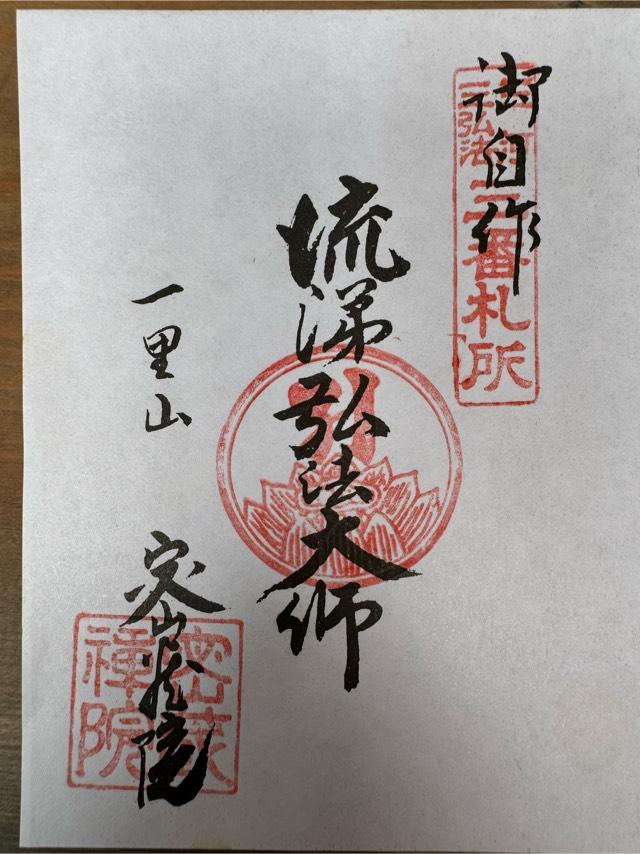 御自作
三河
三弘法
二番札所
流涕弘法大師
一里山
密蔵院
密蔵
禅院